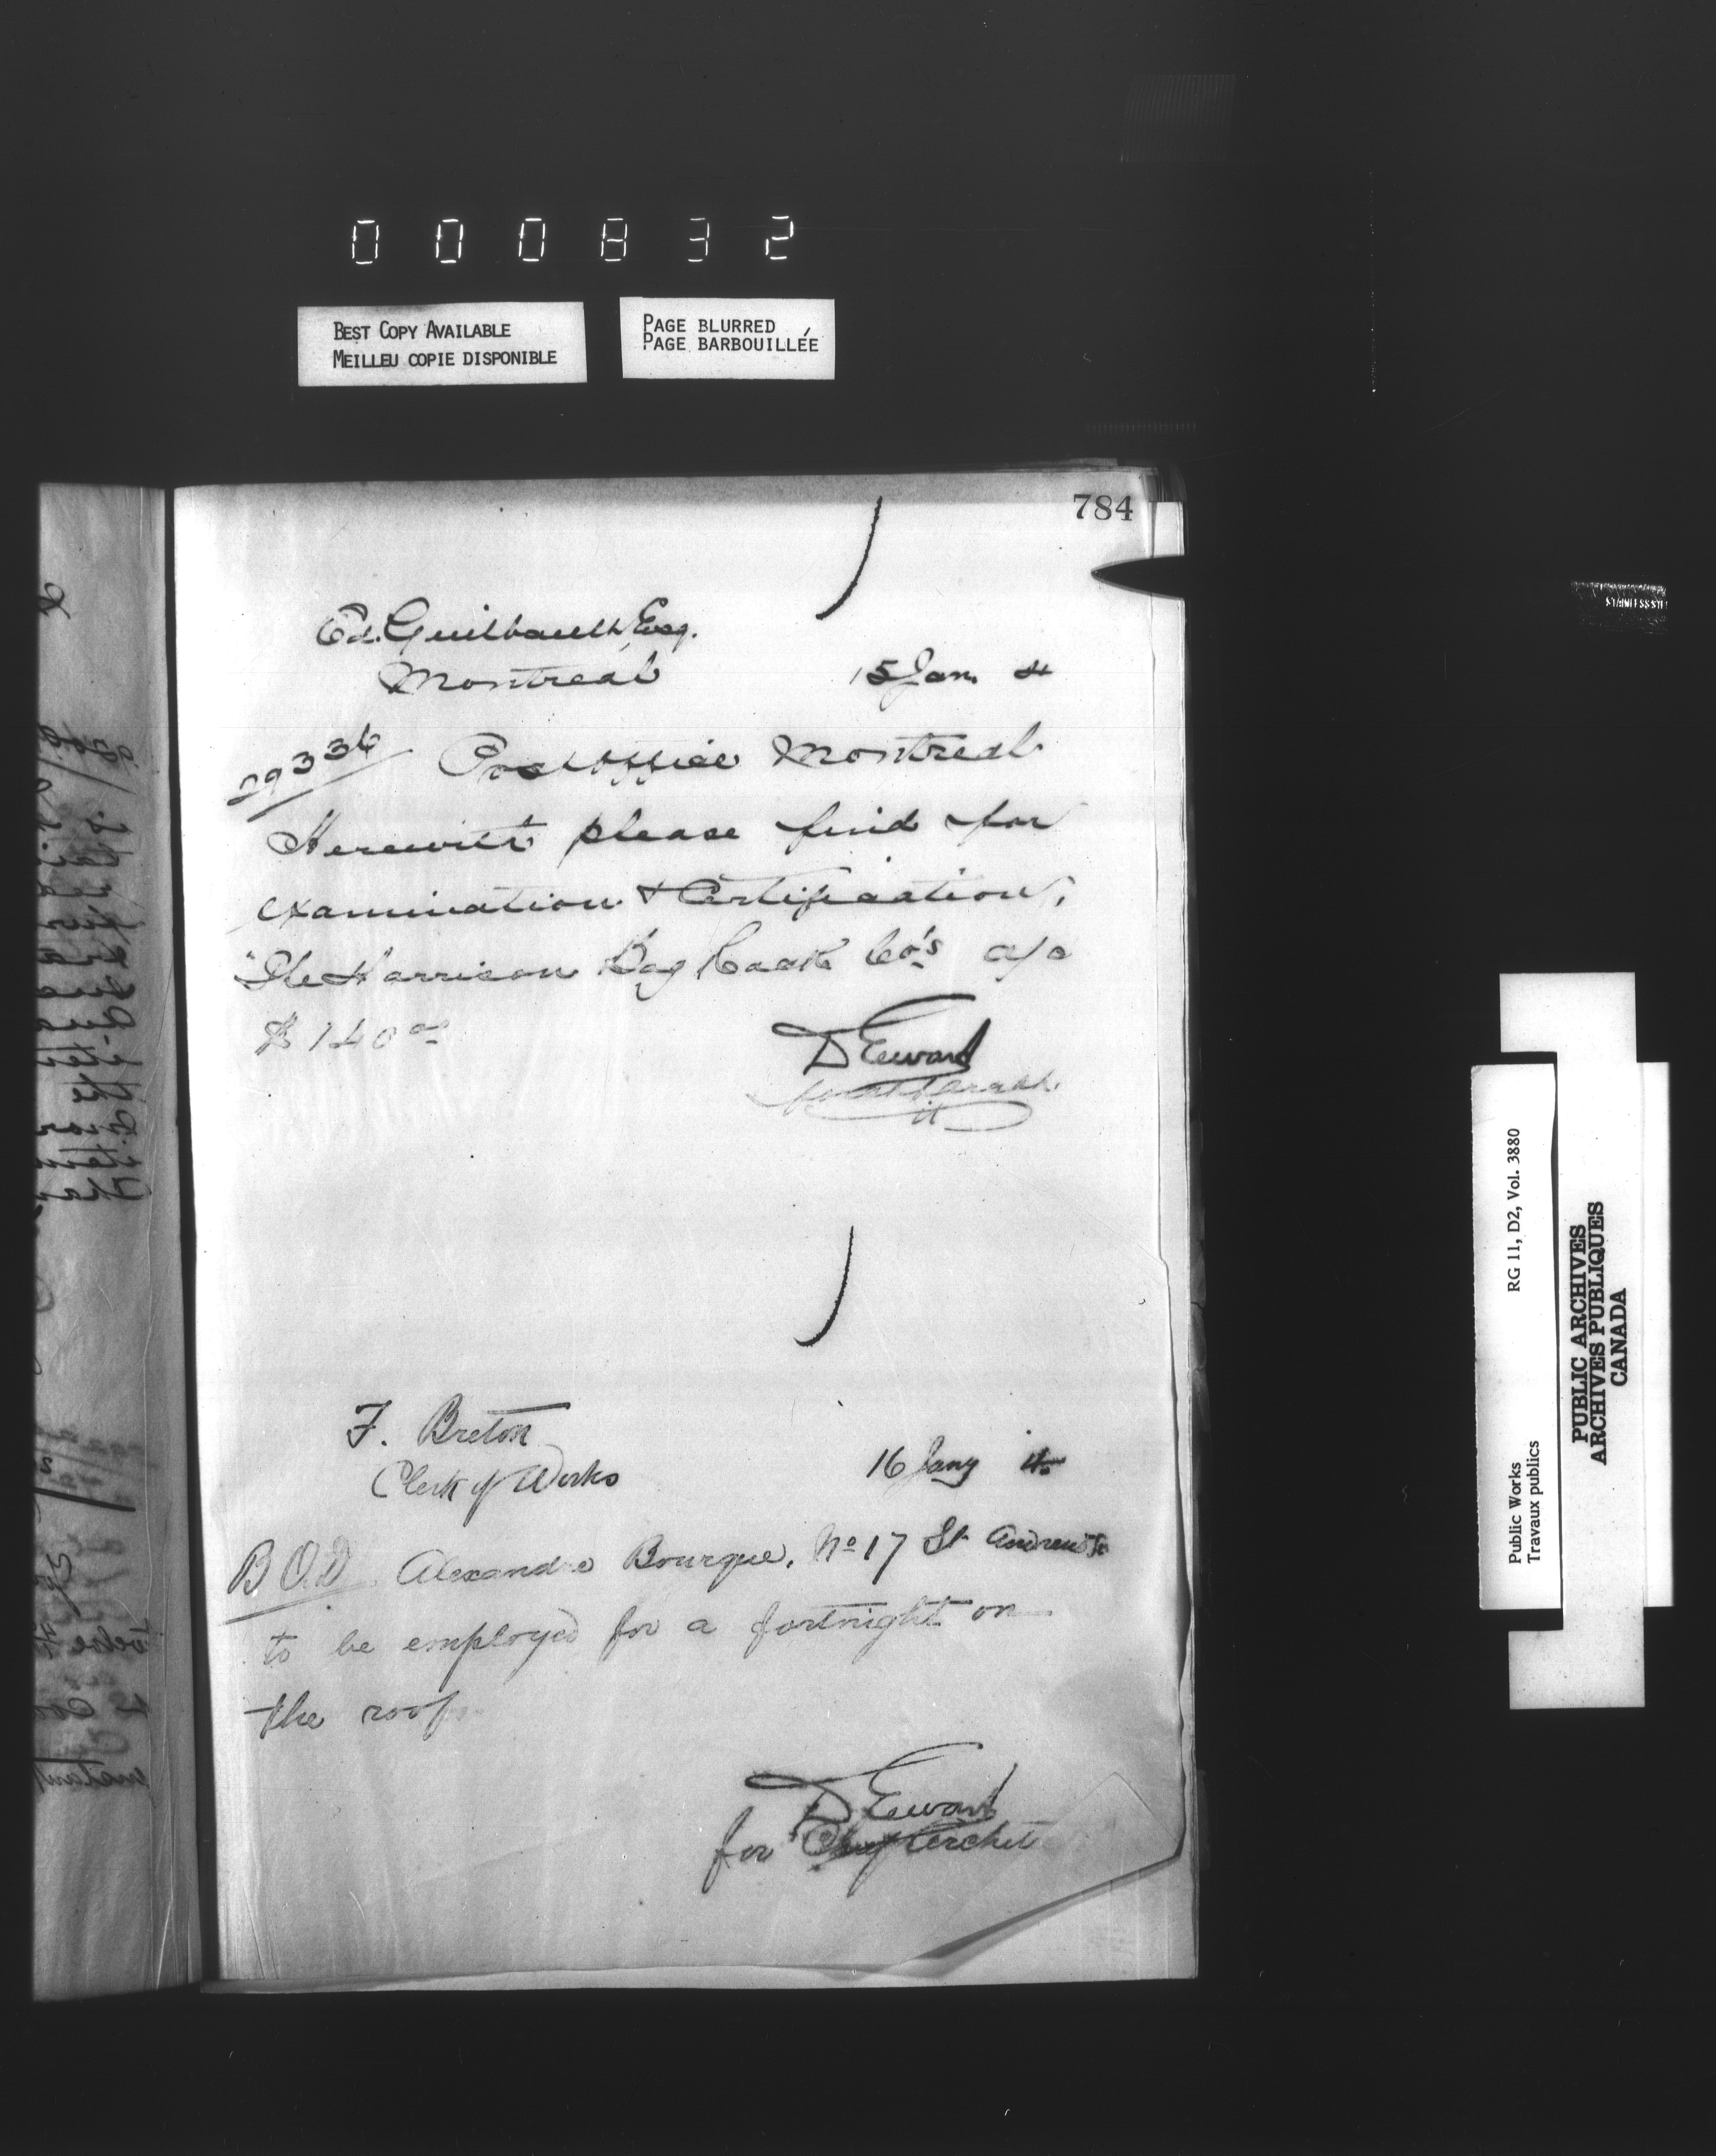 000832
BEST COPY AVAILABLE
MEILLEU COPIE DISPONIBLE
PAGE BLURRED
PAGE BARBOUILLÉE
784
Ed. Guilbault, Esq.
Montreal 15 Jan. 4
29336 Post Office Montreal
Herewith please find for
examination & Certification,
"The Harrison Bag Co's a/c
$140.00
D Ewart
F. Breton
Clerk of Works 16 Jany 4
B.O.D. Alexandre Bourque, No 17 St Andrew St
to be employed for a fortnight on
the roof
D Ewart
for Chief Archet
Public Works RG 11, D2, Vol. 3880
Travaux publics
PUBLIC ARCHIVES
ARCHIVES PUBLIQUES
CANADA